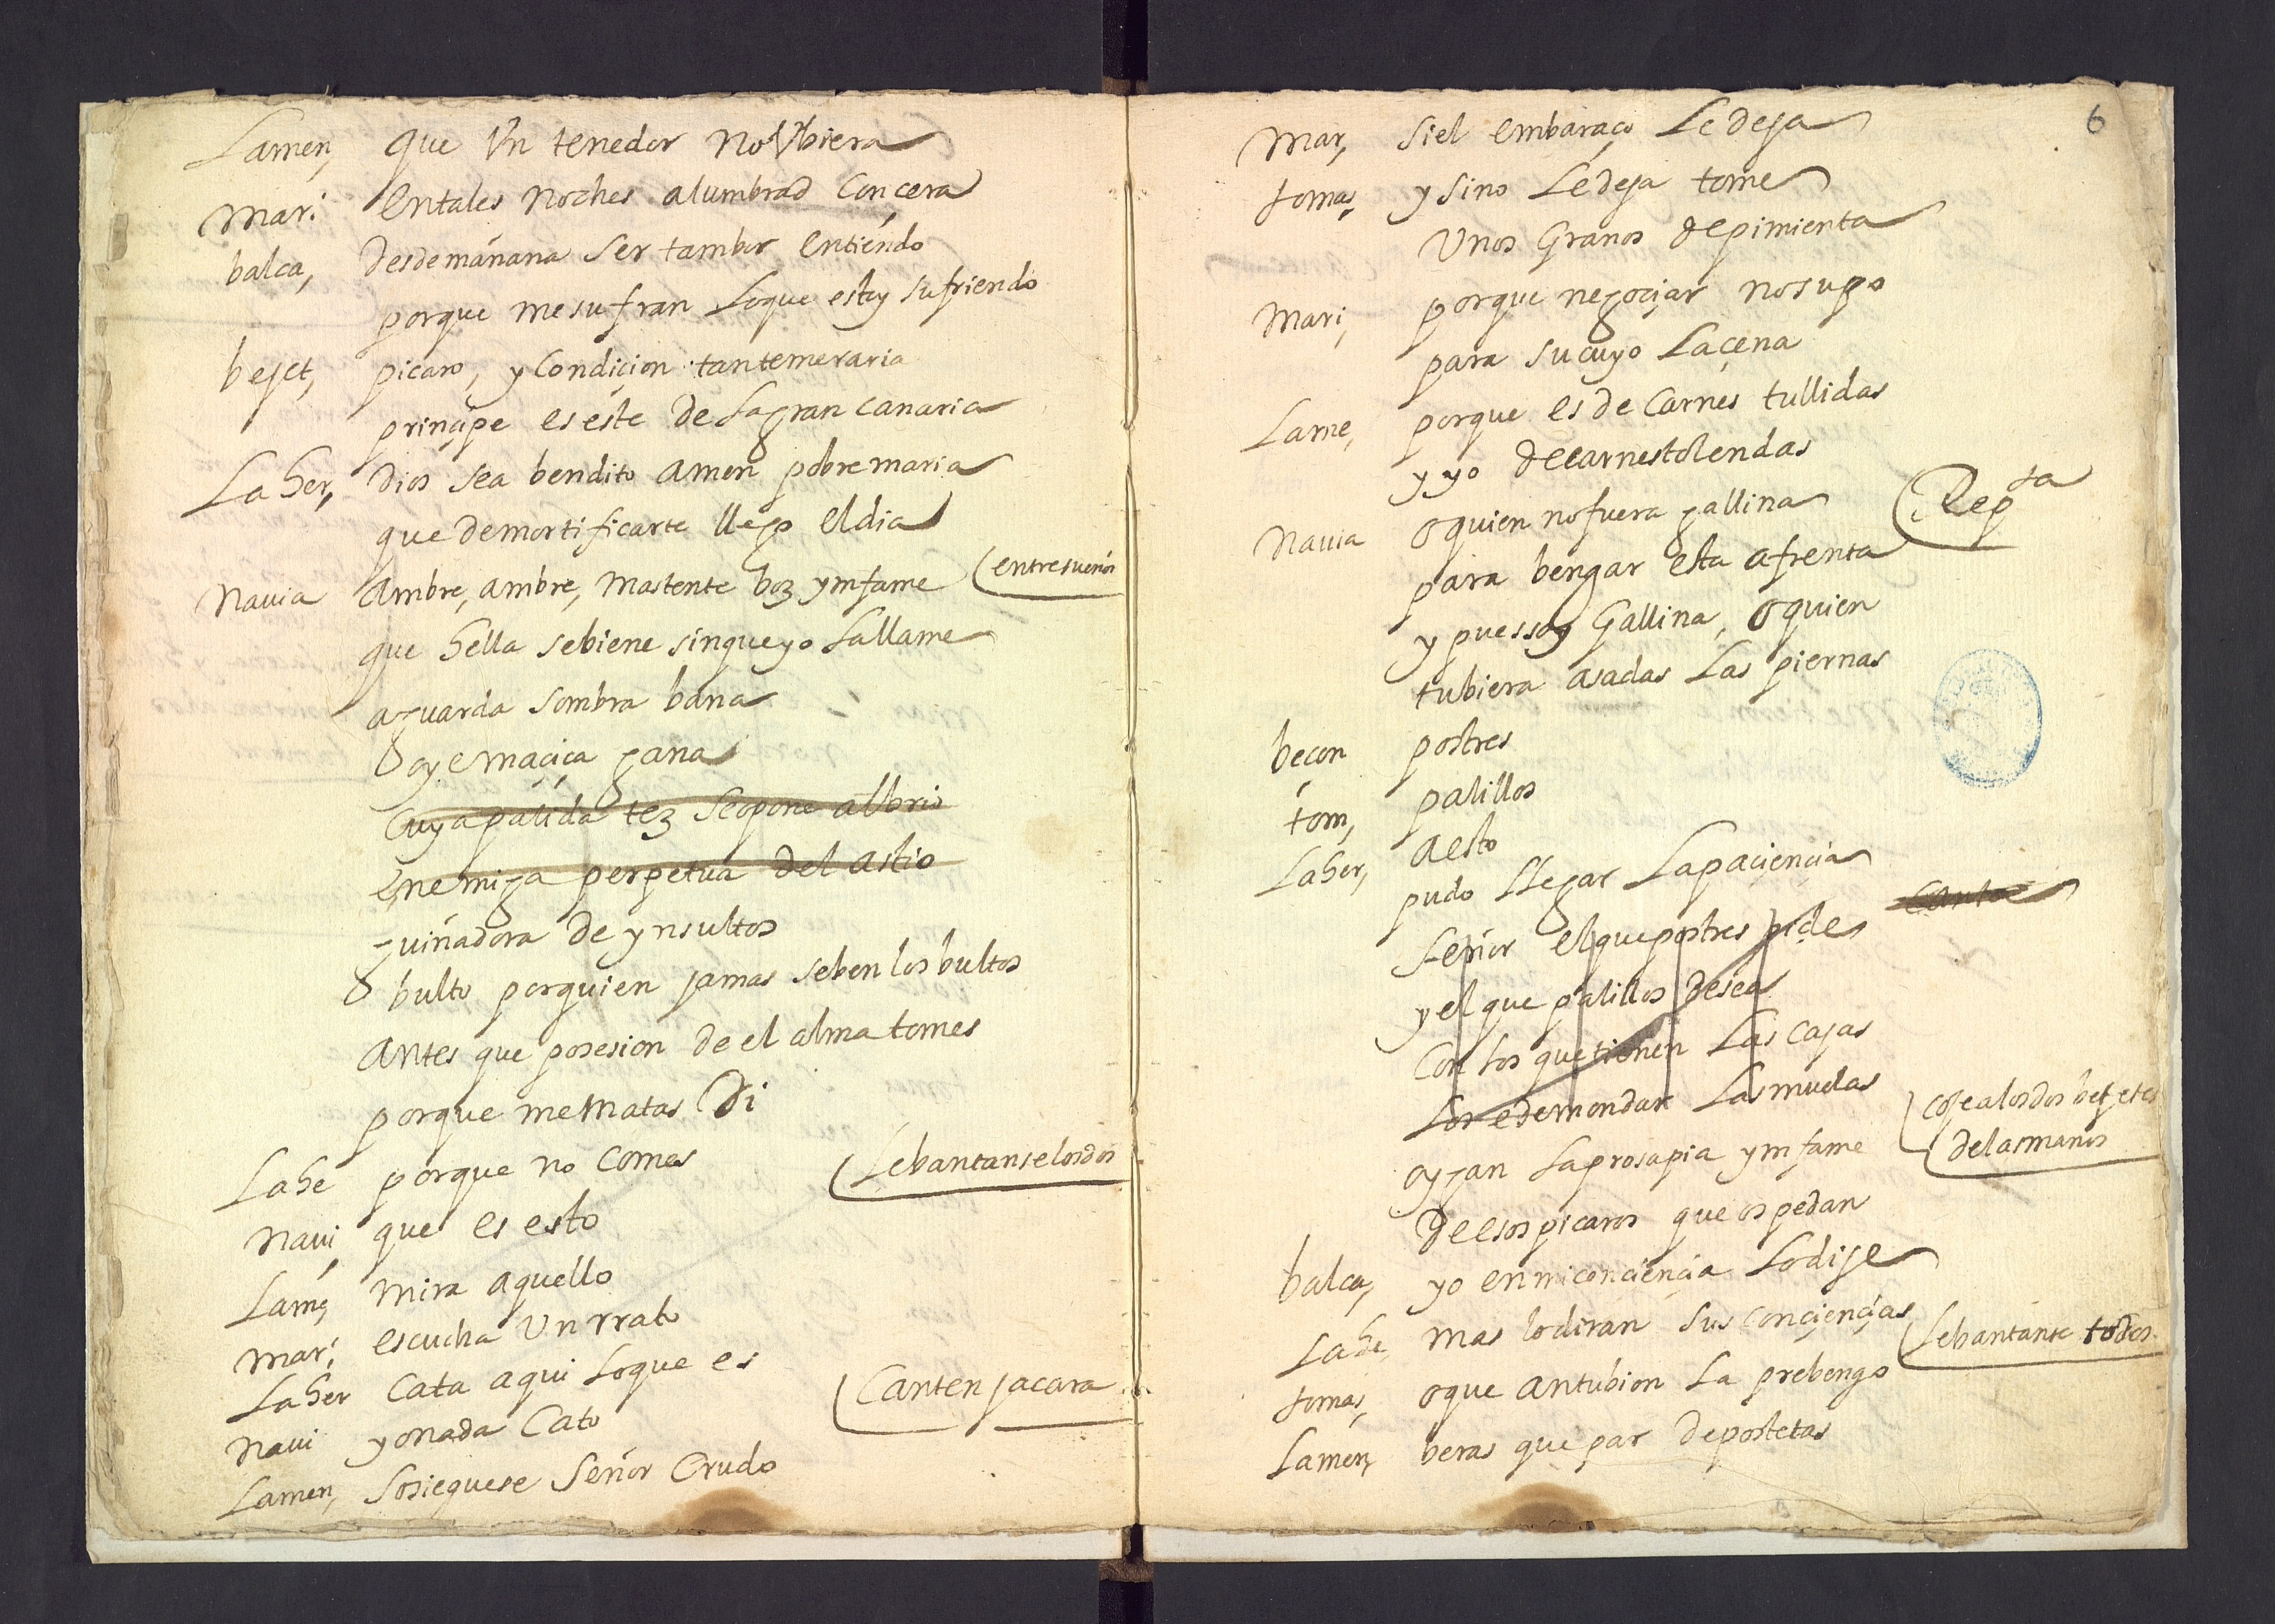 Lamen, que Vn tenedor no Vbiera
Mari entales noches alumbrad concera
balca, desdemañana ser tambor entiendo
porque mesufran Loque estoy sufriendo
bejet, picaro, y condiçion tantemeraria
prinçipe es este de Lagran canaria
La her, Dios sea bendito amen pobre maria
que demortificarte llego eldia
Nauia Ambre, ambre, mastente boz ynfame (entresueños
que hella sebiene sinqueyo Lallame
aguarda sombra bana
O oyemaçiça gana
Cuyapalida tez seopone albrio
enemiga perpetua del astio
guiñadora de ynsultos
O bulto porquien jamas seben los bultos
antes que posesion de el alma tomes
porque mematas Di
Lahe porque no comes (Lebantanselosdos
Naui, que es esto
Lame, mira aquello
mari, escucha Un rrato
Laher Cata aqui Loque es
Naui yonada Cato (Canten jacara
Lamen, Sosieguese Señor Crudo
6
Mar, siel embaraço Ledeja
tomas, y sino Ledeja tome
Unos Granos depimienta
Mari, porque negoçiar nosupo
para sucuyo Laçena
Lame, porque es de Carnes tullidas
y yo decarnestolendas
Nauia o quien nofuera gallina (Repta
para bengar esta afrenta
y puessoy Gallina, o quien
tubiera asadas Las piernas
becon postres
tom, palillos
Laher, aesto
pudo llegar Lapaçiençia
Señor elquepostres pide Canta
y el que palillos desea
Con los quetienen Las cajas
Los edemondar Lasmuelas
oygan Laprosapia ynfame (cojealosdos bejetes
delasmanos
deesospicaros que ospedan
balca, yo enmiconciençia Lodije
Lahe, mas lodiran sus conçiençias (Lebantanse todos
tomas, oque antubion La prebengo
Lamen, beras que par depostetas